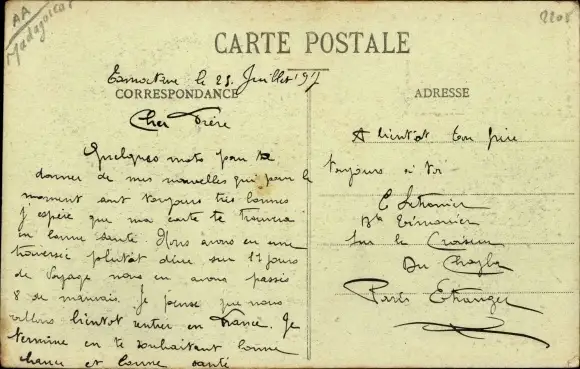 AA
Madagascar
2208
CARTE POSTALE
le 28 Juillet 1917
CORRESPONDANCE
Cher Frère
Quelques mots pour te
donner de mes nouvelles qui pour le
moment sont toujours très bonnes
j espère que ma carte te trouvera
en bonne santé. Nous avons eu une
traversée plutôt dure sur 17 jours
de voyage nous en avons passés
8 de mauvais. Je pense que nous
allons bientot rentrer en France. Je
termine en te souhaitant bonne
chance et bonne santé
ADRESSE
A bientot ton frère
toujours à toi
E
Bte Timonier
Sur le Croiseur
Du Chayla
Paris Etranger